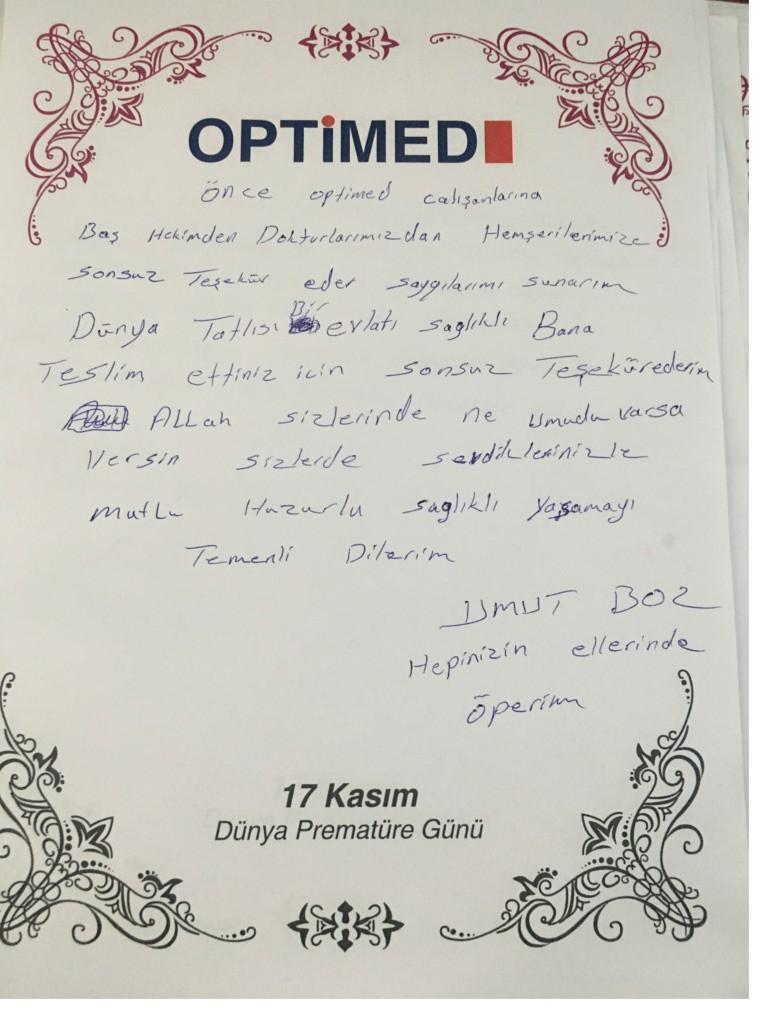 OPTiMED
Önce optimed calışanlarına
Baş Hekimden Dokturlarımızdan Hemşerilerimize
sonsuz Teşekür eder saygılarımı sunarım
Dünya Tatlısı Bir evlatı sağlıklı Bana
Teslim ettiniz icin sonsuz Teşekürederim
ALLah sizlerinde ne umudu varsa
Versin sizlerde sevdiklerinizle
mutlu Huzurlu sağlıklı yaşamayı
Temenli Dilerim
UMUT BOZ
Hepinizin ellerinde
öperim
17 Kasım
Dünya Prematüre Günü